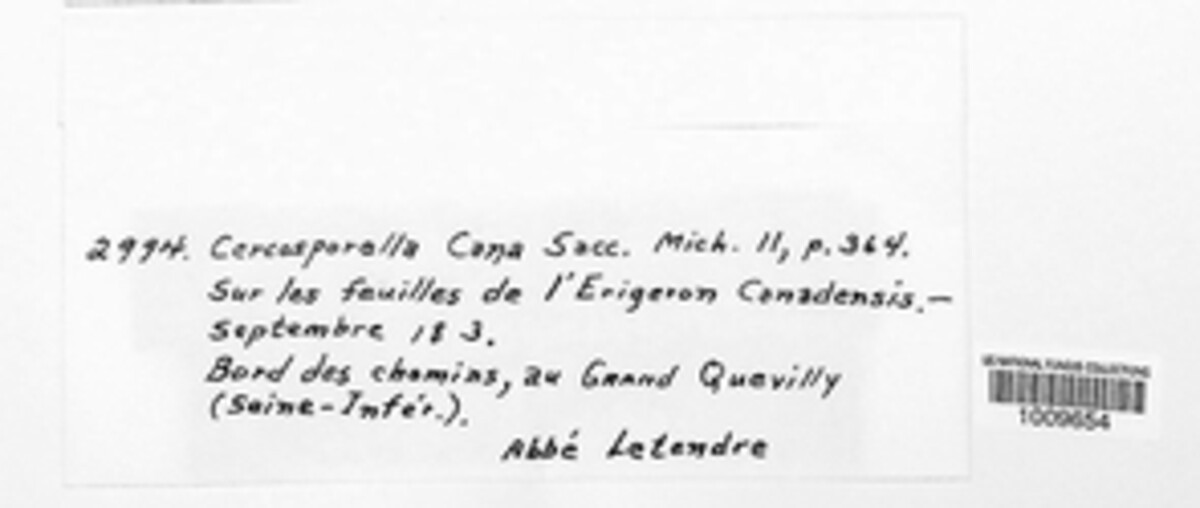 2994. Cercosporella Cana Sacc. Mich. II, p. 364.
Sur les feuilles de l'Erigeron Canadensis. —
Septembre 18 3.
Bord des chemins, au Grand Quevilly
(Seine-Infér.).
Abbé Letendre
US NATIONAL FUNGUS COLLECTIONS
1009654